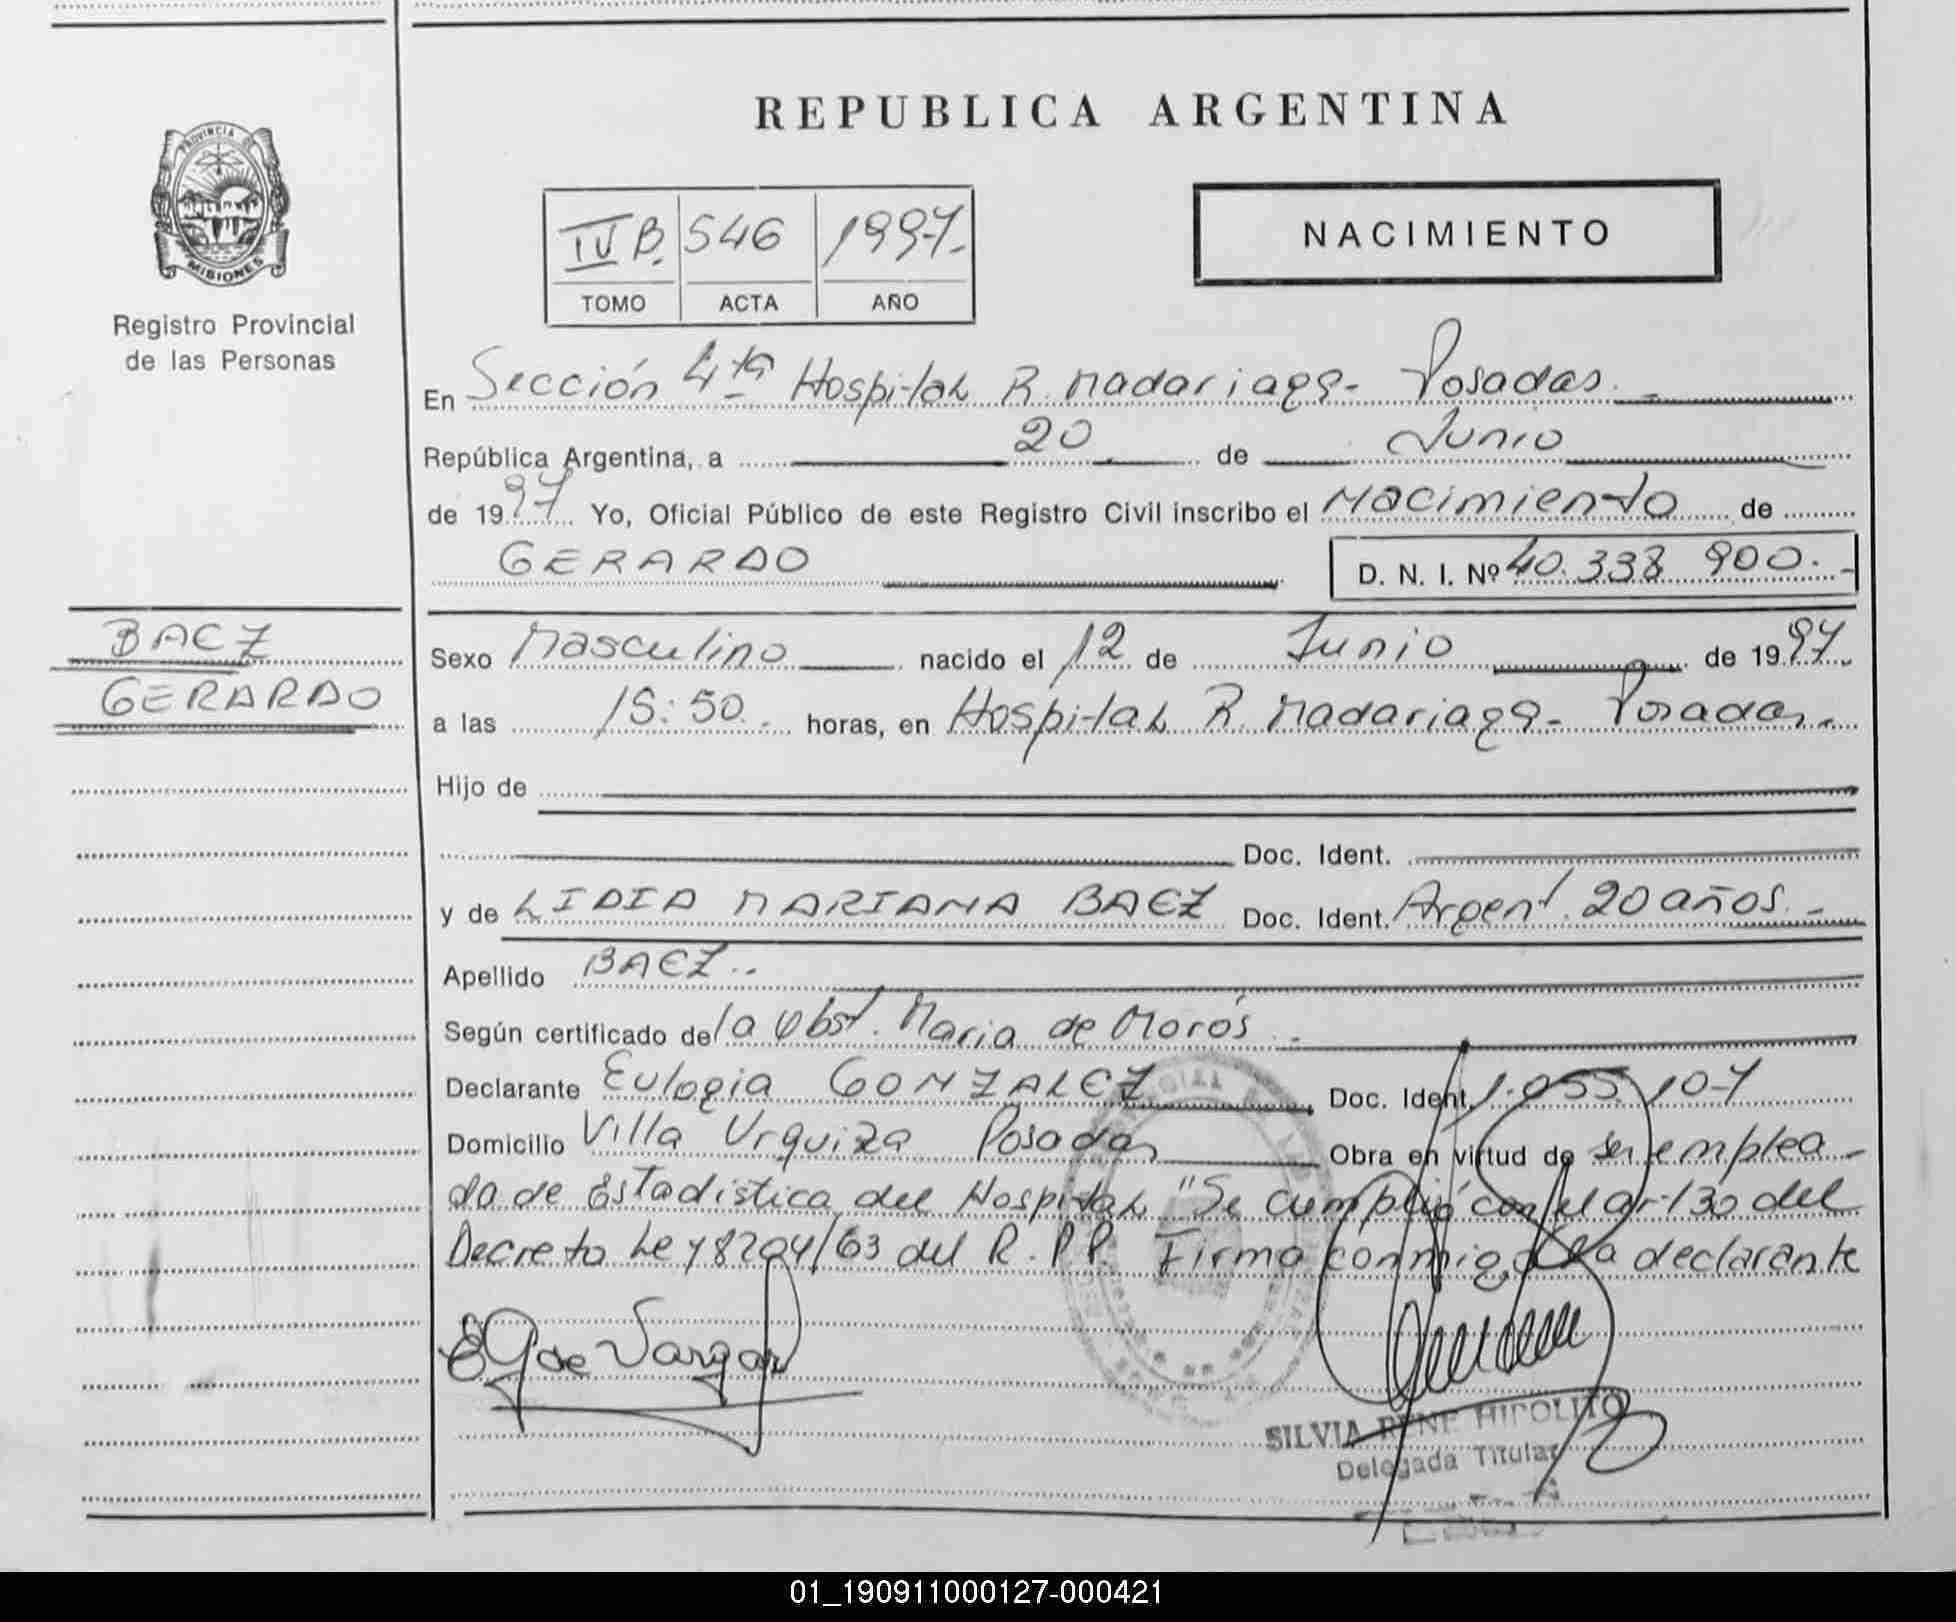 REPUBLICA ARGENTINA
PROVINCIA DE
MISIONES
Registro Provincial
de las Personas
IV B. 546 1997.-
TOMO ACTA AÑO
NACIMIENTO
En Sección 4ta Hospital R. Madariaga- Posadas.
República Argentina, a 20 de Junio
de 1997 Yo, Oficial Público de este Registro Civil inscribo el Nacimiento de
GERARDO D. N. I. Nº 40.338 900.-
BAEZ
GERARDO
Sexo Masculino nacido el 12 de Junio de 1997
a las 15:50.- horas, en Hospital R. Madariaga- Posadas.-
Hijo de
Doc. Ident.
y de LIDIA MARIANA BAEZ Doc. Ident. Argent. 20 años.-
Apellido BAEZ..
Según certificado de la obst. Maria de Morós.-
Declarante Eulogia GONZALEZ Doc. Ident. 1.055.107
Domicilio Villa Urquiza Posadas Obra en virtud de ser emplea-
da de Estadistica del Hospital "Se cumplió con el art 30 del
Decreto Ley 8204/63 del R.P.P. Firma conmigo la declarante
EG de Vargas
SILVIA RENE HIPOLITO
Delegada Titular
01_190911000127-000421